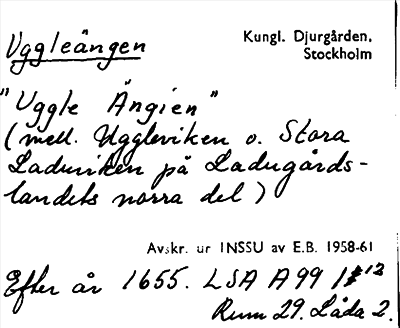 Uggleängen
Kungl. Djurgården,
Stockholm
"Uggle Ängien"
(mell. Uggleviken o. Stora
Laduviken på Ladugårds-
landets norra del)
Avskr. ur INSSU av E.B. 1958-61
Efter år 1655. LSA A99 12
Rum 29. Låda 2.